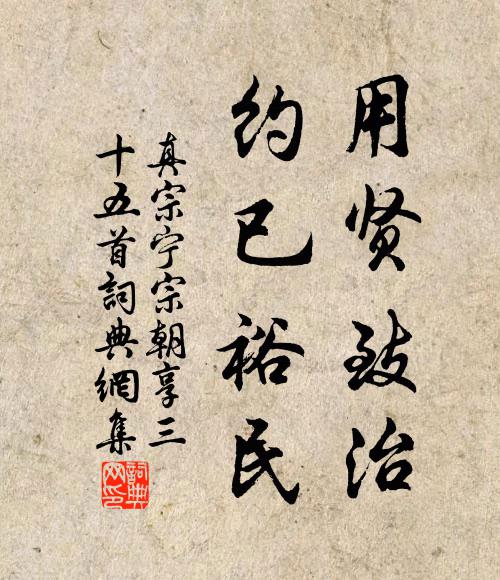 用贤致治
约已裕民
真宗宁宗朝享三
十五首詞典網集
詞典网印